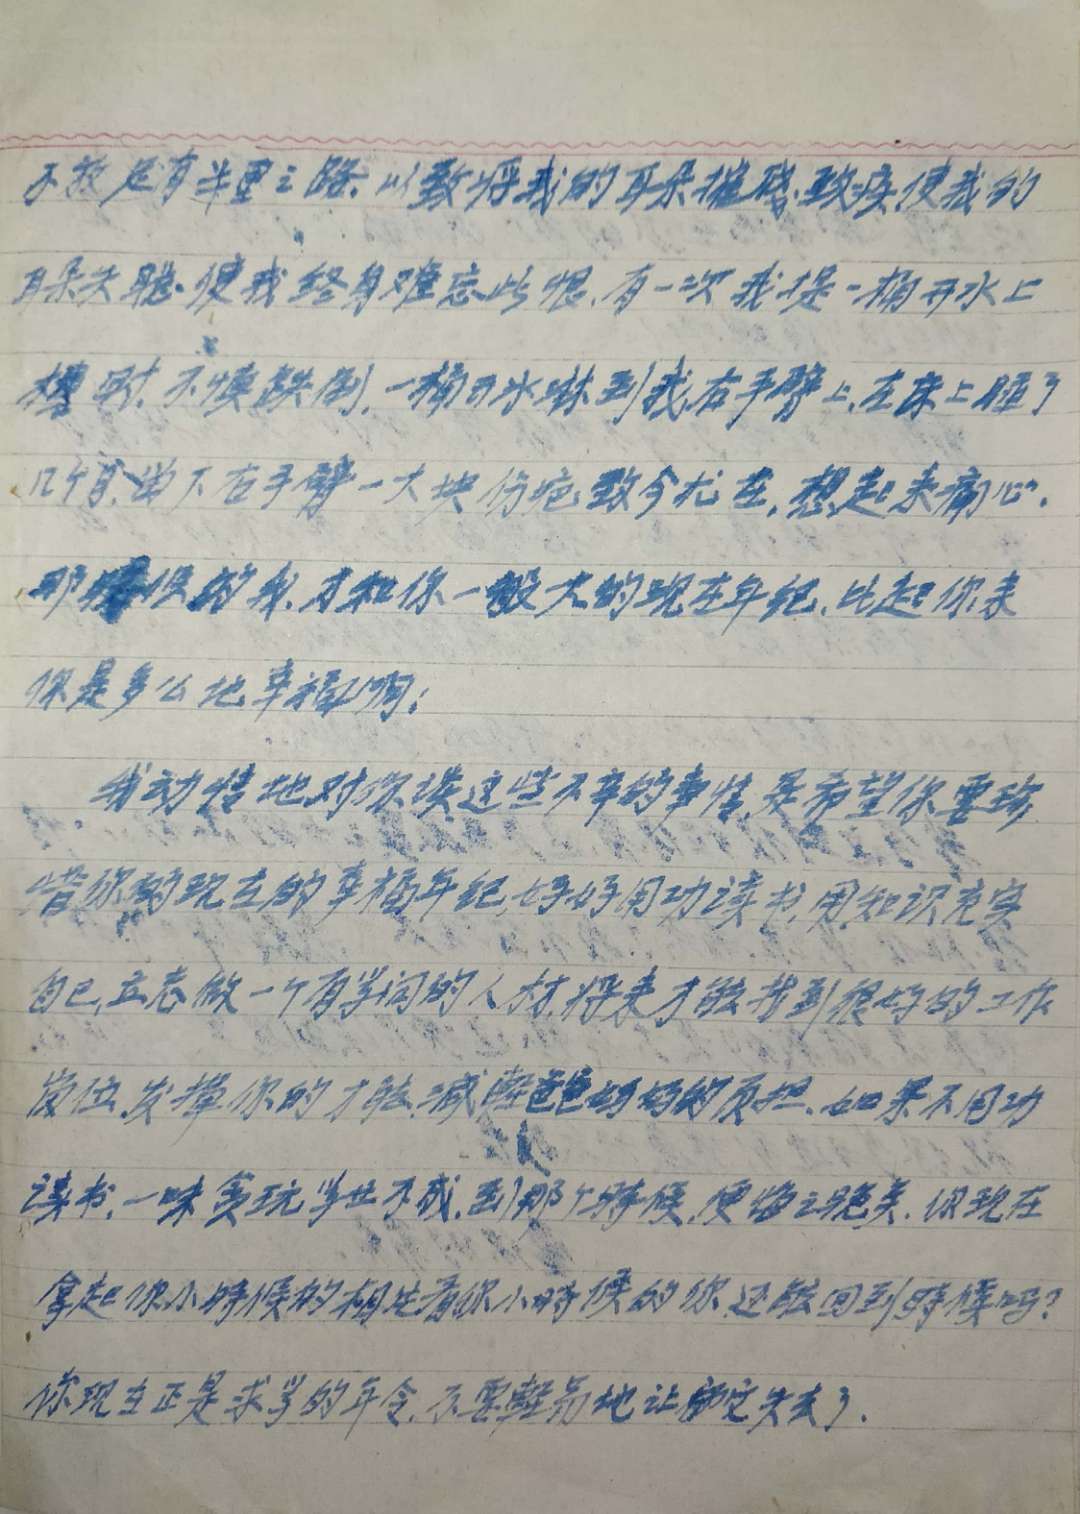 不放足有半里之路，以致将我的耳朵摧残致疾，使我的
耳朵失聪。使我终身难忘此恨，有一次我提一桶开水上
楼时，不慎跌倒，一桶开水淋到我右手臂上，在床上睡了
几个月，留下右手臂一大块伤疤，致今尤在，想起来痛心。
那時候的我，才和你一般大的现在年纪，比起你来
你是多么地幸福啊！
我动情地对你谈这些不幸的事情，是希望你要珍
惜你的现在的幸福年纪，好好用功读书，用知识充实
自己，立志做一个有学问的人材，将来才能找到很好的工作
岗位，发挥你的才能，减轻爸爸妈妈的负担。如果不用功
读书，一味贪玩，学业不成，到那个時候，便悔之晚矣。你现在
拿起你小時候的相片看你小時候的你，还能回到時候吗？
你现在正是求学的年令，不要輕易地让它失去了。